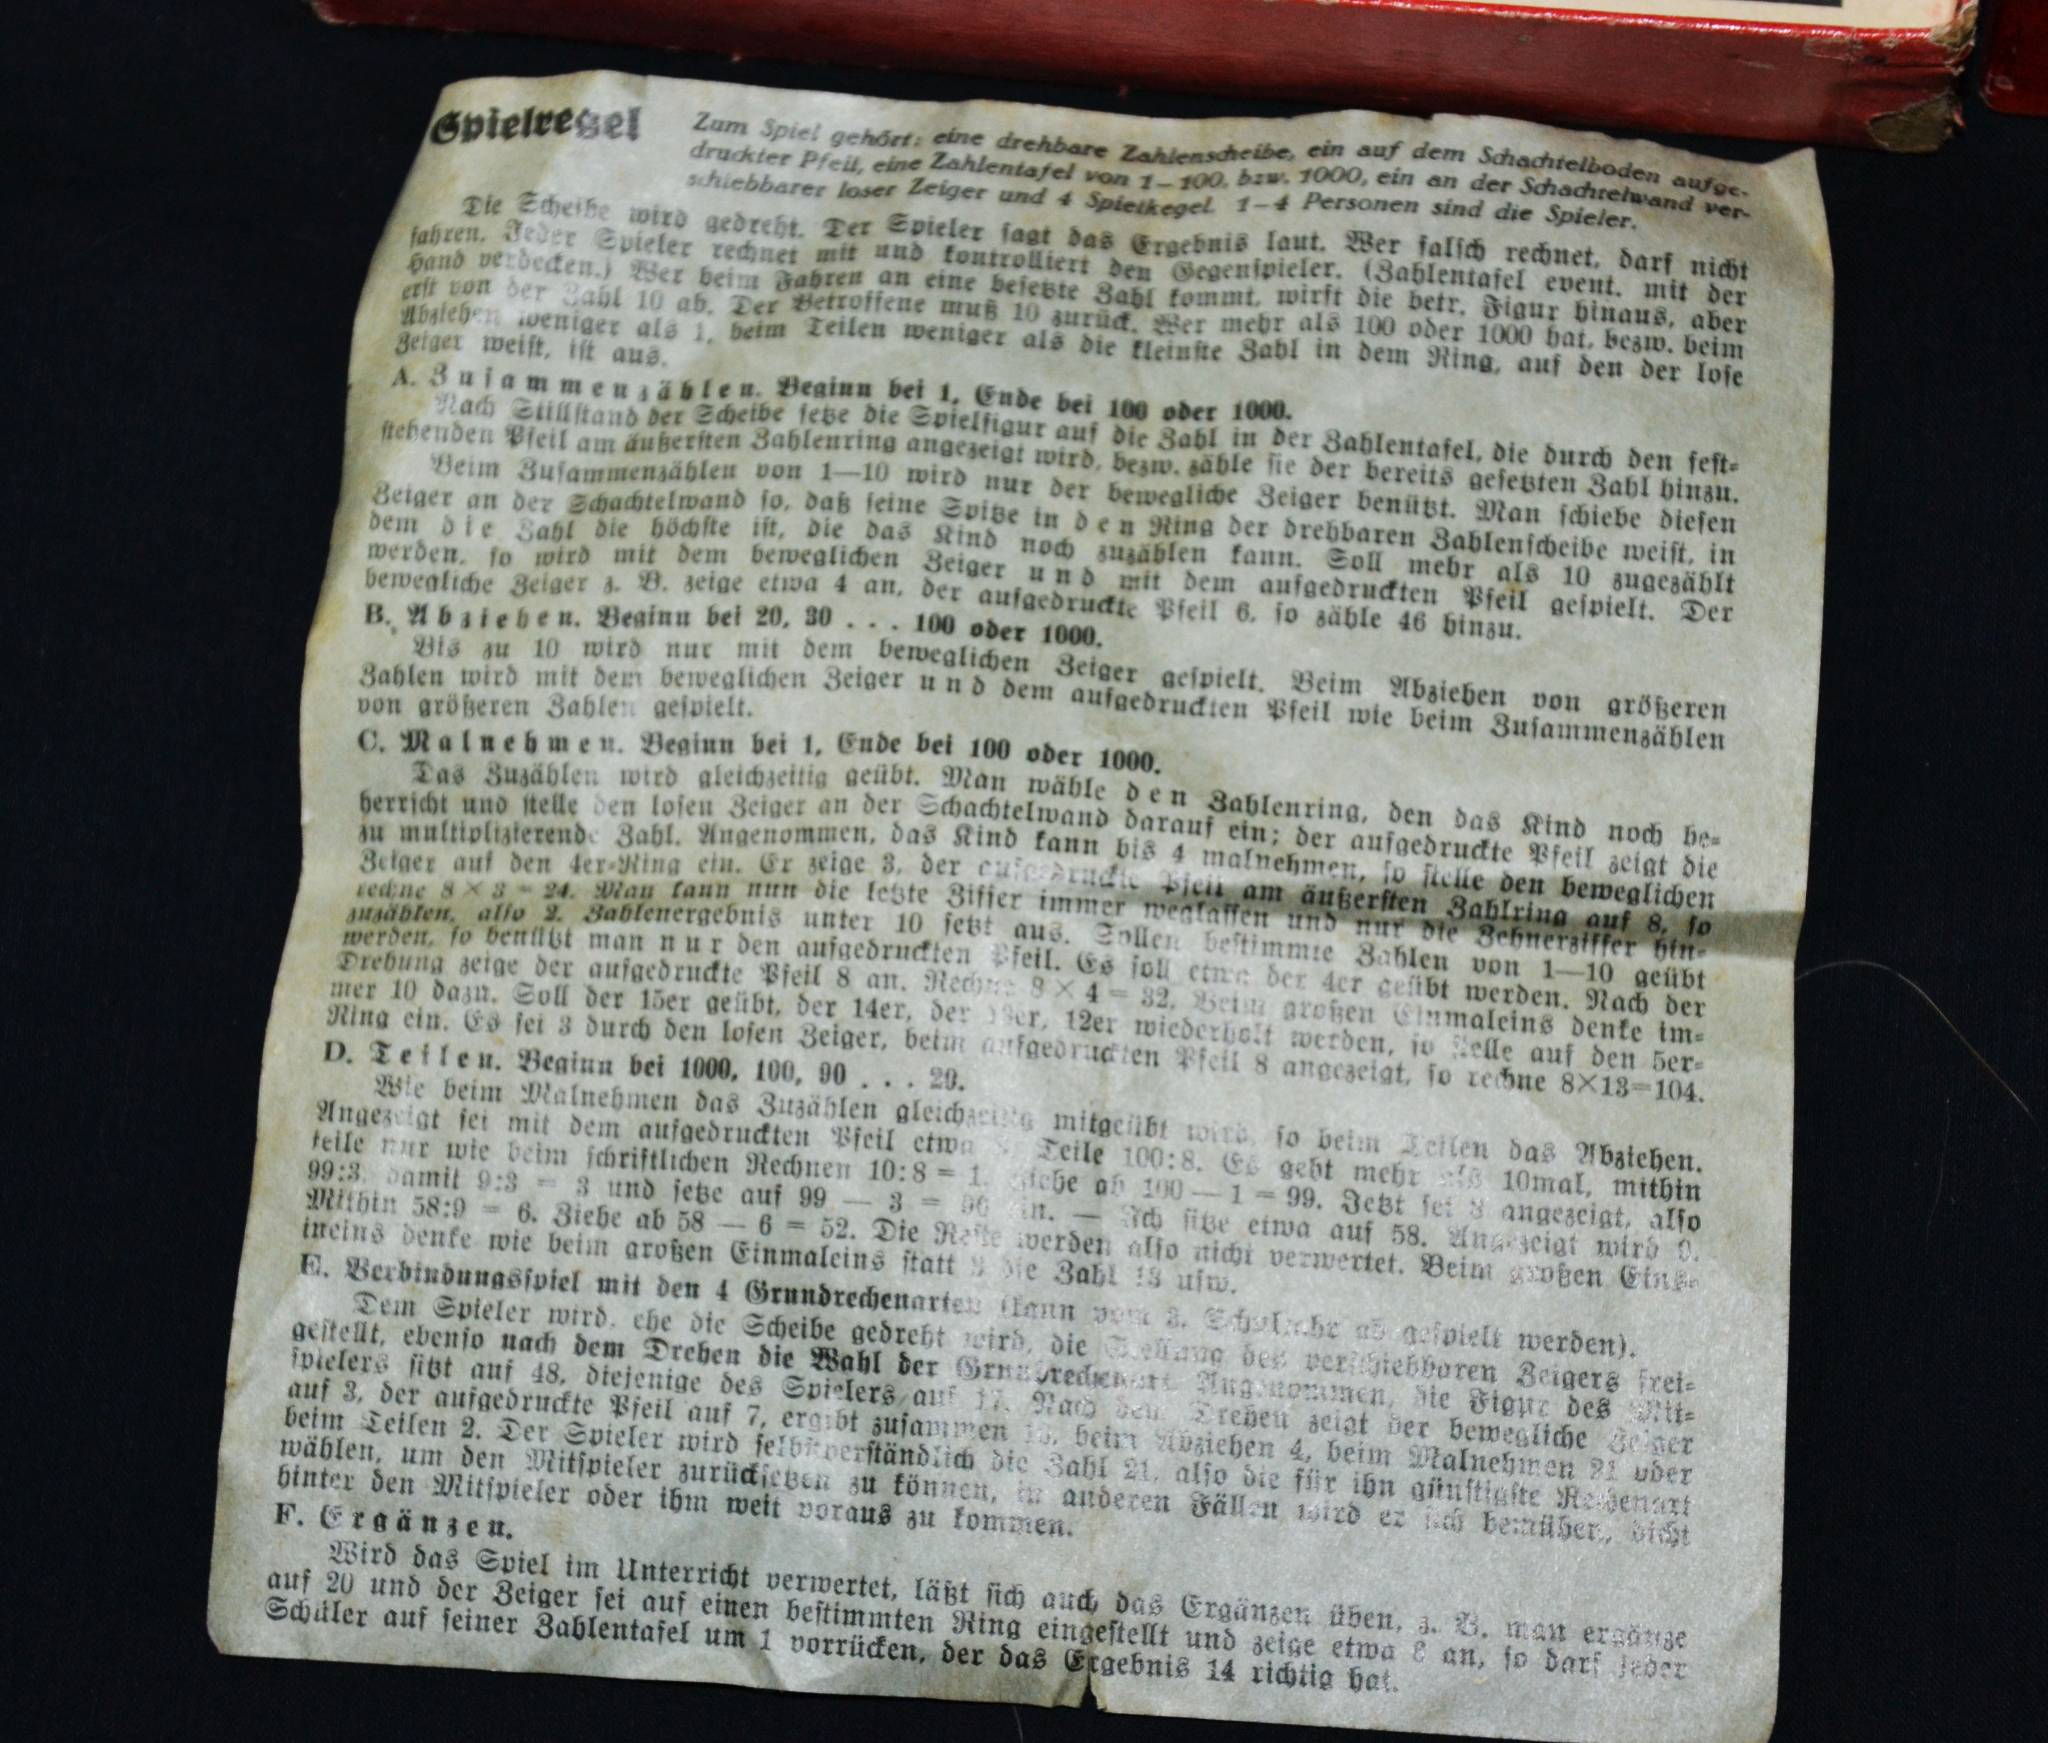 Spielregel
Zum Spiel gehört: eine drehbare Zahlenscheibe, ein auf dem Schachtelboden aufge-
druckter Pfeil, eine Zahlentafel von 1—100, bzw. 1000, ein an der Schachtelwand ver-
schiebbarer loser Zeiger und 4 Spielkegel. 1—4 Personen sind die Spieler.
Die Scheibe wird gedreht. Der Spieler sagt das Ergebnis laut. Wer falsch rechnet, darf nicht
fahren. Jeder Spieler rechnet mit und kontrolliert den Gegenspieler. (Zahlentafel event. mit der
Hand verdecken.) Wer beim Fahren an eine besetzte Zahl kommt, wirft die betr. Figur hinaus, aber
erst von der Zahl 10 ab. Der Betroffene muß 10 zurück. Wer mehr als 100 oder 1000 hat, bezw. beim
Abziehen weniger als 1, beim Teilen weniger als die kleinste Zahl in dem Ring, auf den der lose
Zeiger weist, ist aus.
A. Zusammenzählen. Beginn bei 1, Ende bei 100 oder 1000.
Nach Stillstand der Scheibe setze die Spielfigur auf die Zahl in der Zahlentafel, die durch den fest-
stehenden Pfeil am äußersten Zahlenring angezeigt wird, bezw. zähle sie der bereits gesetzten Zahl hinzu.
Beim Zusammenzählen von 1—10 wird nur der bewegliche Zeiger benützt. Man schiebe diesen
Zeiger an der Schachtelwand so, daß seine Spitze in den Ring der drehbaren Zahlenscheibe weist, in
dem die Zahl die höchste ist, die das Kind noch zuzählen kann. Soll mehr als 10 zugezählt
werden, so wird mit dem beweglichen Zeiger und mit dem aufgedruckten Pfeil gespielt. Der
bewegliche Zeiger z. B. zeige etwa 4 an, der aufgedruckte Pfeil 6, so zähle 46 hinzu.
B. Abziehen. Beginn bei 20, 30 . . . 100 oder 1000.
Bis zu 10 wird nur mit dem beweglichen Zeiger gespielt. Beim Abziehen von größeren
Zahlen wird mit dem beweglichen Zeiger und dem aufgedruckten Pfeil wie beim Zusammenzählen
von größeren Zahlen gespielt.
C. Malnehmen. Beginn bei 1, Ende bei 100 oder 1000.
Das Zuzählen wird gleichzeitig geübt. Man wähle den Zahlenring, den das Kind noch be-
herrscht und stelle den losen Zeiger an der Schachtelwand darauf ein; der aufgedruckte Pfeil zeigt die
zu multiplizierende Zahl. Angenommen, das Kind kann bis 4 malnehmen, so stelle den beweglichen
Zeiger auf den 4er-Ring ein. Er zeige 3, der aufgedruckte Pfeil am äußersten Zahlring auf 8, so
rechne 8 × 3 = 24. Man kann nun die letzte Ziffer immer weglassen und nur die Zehnerziffer hin-
zuzählen, also 2. Zahlenergebnis unter 10 setzt aus. Sollen bestimmte Zahlen von 1—10 geübt
werden, so benützt man nur den aufgedruckten Pfeil. Es soll etwa der 4er geübt werden. Nach der
Drehung zeige der aufgedruckte Pfeil 8 an. Rechne 8 × 4 = 32. Beim großen Einmaleins denke im-
mer 10 dazu. Soll der 15er geübt, der 14er, der 13er, 12er wiederholt werden, so stelle auf den 5er-
Ring ein. Es sei 3 durch den losen Zeiger, beim aufgedruckten Pfeil 8 angezeigt, so rechne 8×13=104.
D. Teilen. Beginn bei 1000, 100, 90 . . . 20.
Wie beim Malnehmen das Zuzählen gleichzeitig mitgeübt wird, so beim Teilen das Abziehen.
Angezeigt sei mit dem aufgedruckten Pfeil etwa Teile 100:8. Es geht mehr als 10mal, mithin
teile nur wie beim schriftlichen Rechnen 10:8 = 1, ziehe ab 100 — 1 = 99. Jetzt sei 3 angezeigt, also
99:3, damit 9:3 = 3 und setze auf 99 — 3 = 96 ein. — Ich sitze etwa auf 58. Angezeigt wird 9.
Mithin 58:9 = 6. Ziehe ab 58 — 6 = 52. Die Reste werden also nicht verwertet. Beim großen Einma-
leins denke wie beim großen Einmaleins statt 3 die Zahl 13 usw.
E. Verbindungsspiel mit den 4 Grundrechenarten (kann vom 3. Schuljahr ab gespielt werden).
Dem Spieler wird, ehe die Scheibe gedreht wird, die Stellung des verschiebbaren Zeigers frei-
gestellt, ebenso nach dem Drehen die Wahl der Grundrechenart. Angenommen, die Figur des Mit-
spielers sitzt auf 48, diejenige des Spielers auf 17. Nach dem Drehen zeigt der bewegliche Zeiger
auf 3, der aufgedruckte Pfeil auf 7, ergibt zusammen 10, beim Abziehen 4, beim Malnehmen 21 oder
beim Teilen 2. Der Spieler wird selbstverständlich die Zahl 21, also die für ihn günstigste Rechenart
wählen, um den Mitspieler zurücksetzen zu können, in anderen Fällen wird er sich bemühen, dicht
hinter den Mitspieler oder ihm weit voraus zu kommen.
F. Ergänzen.
Wird das Spiel im Unterricht verwertet, läßt sich auch das Ergänzen üben, z. B. man ergänze
auf 20 und der Zeiger sei auf einen bestimmten Ring eingestellt und zeige etwa 6 an, so darf jeder
Schüler auf seiner Zahlentafel um 1 vorrücken, der das Ergebnis 14 richtig hat.